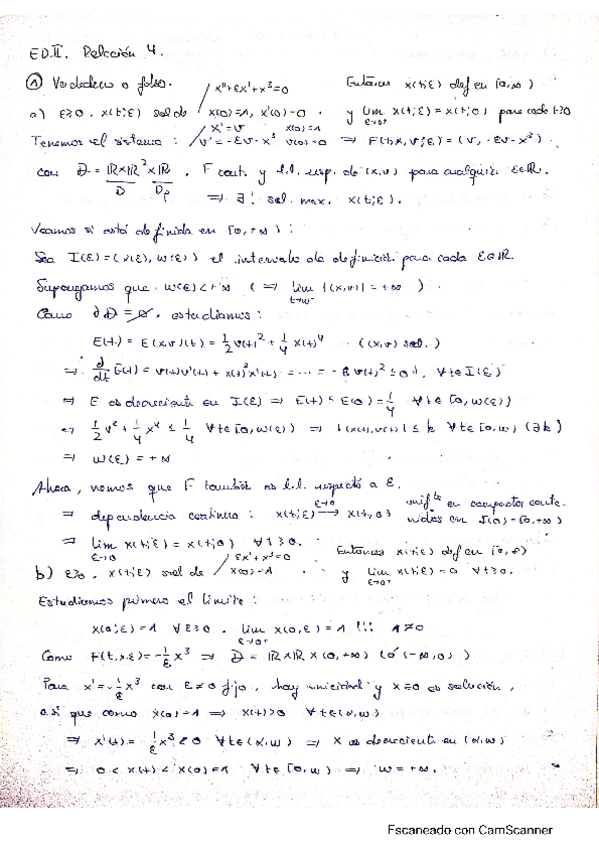 ED.II. Relación 4.
① Verdadero o falso.
a) ε≥0. x(t;ε) sol de { x''+εx'+x³=0 x(0)=1, x'(0)=0 . Entonces x(t;ε) def en [0,∞) y lim_{ε→0⁺} x(t;ε) = x(t;0) para cada t≥0
Tenemos el sistema: { x'=v x(0)=1 v'=-εv-x³ v(0)=0 ⇒ F(t,x,v;ε)=(v, -εv-x³)
con D = ℝ×ℝ²×ℝ, F cont. y l.l. resp. de (x,v) para cualquier ε∈ℝ.
D D_p
⇒ ∃! sol. max. x(t;ε).
Veamos si está definida en [0,+∞):
Sea I(ε)=(α(ε), ω(ε)) el intervalo de definición para cada ε∈ℝ.
Supongamos que ω(ε)<+∞ (⇒ lim_{t→ω⁻} |(x,v)| = +∞)
Como ∂D=∅, estudiamos:
E(t) = E(x,v)(t) = 1/2 v(t)² + 1/4 x(t)⁴ ((x,v) sol.)
⇒ d/dt E(t) = v(t)v'(t) + x(t)³x'(t) = ... = -εv(t)² ≤ 0, ∀t∈I(ε)
⇒ E es decreciente en I(ε) ⇒ E(t) ≤ E(0) = 1/4 ∀t∈[0,ω(ε))
⇔ 1/2 v² + 1/4 x⁴ ≤ 1/4 ∀t∈[0,ω(ε)) ⇒ |(x(t),v(t))| ≤ k ∀t∈[0,ω) (∃k)
⇒ ω(ε) = +∞
Ahora, vemos que F también es l.l. respecto a ε.
⇒ dependencia continua: x(t;ε) →^{ε→0} x(t,0) unif^{te} en compactos contenidos en I(0)=[0,+∞)
⇒ lim_{ε→0} x(t;ε) = x(t;0) ∀t≥0.
b) ε≥0. x(t;ε) sol de { εx'+x³=0 x(0)=1 Entonces x(t;ε) def en [0,∞) y lim_{ε→0⁺} x(t;ε)=0 ∀t≥0.
Estudiamos primero el límite:
x(0;ε)=1 ∀ε≥0. lim_{ε→0⁺} x(0,ε)=1 !!! 1≠0
Como F(t,x,ε)=-1/ε x³ ⇒ D = ℝ×ℝ×(0,+∞) (ó (-∞,0))
Para x'=-1/ε x³ con ε≠0 fijo, hay unicidad y x≡0 es solución,
así que como x(0)=1 ⇒ x(t)>0 ∀t∈(α,ω)
⇒ x'(t) = -1/ε x³<0 ∀t∈(α,ω) ⇒ x es decreciente en (α,ω)
⇒ 0 < x(t) < x(0)=1 ∀t∈[0,ω) ⇒ ω=+∞.
Escaneado con CamScanner